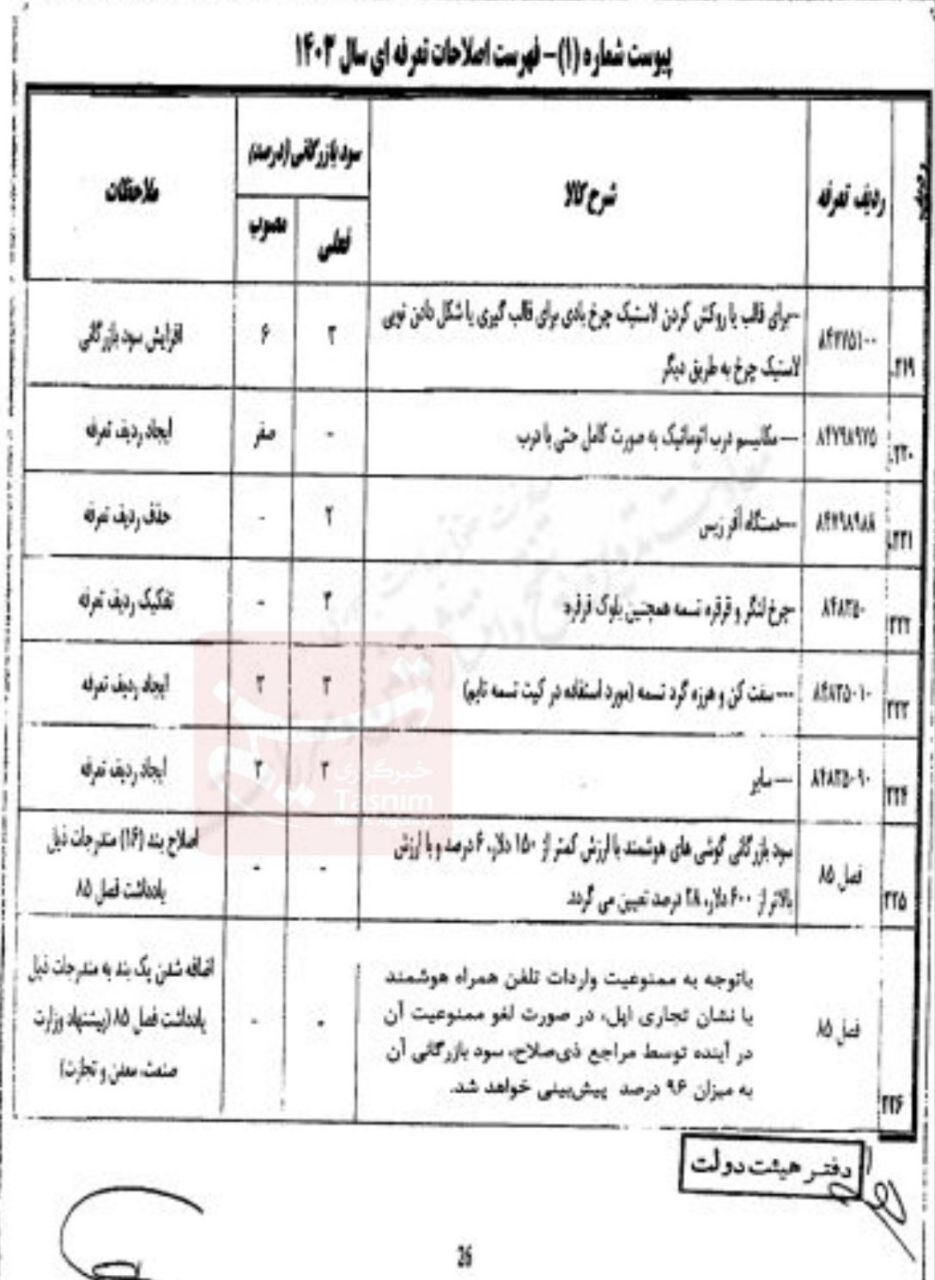 پیوست شماره (۱)- فهرست اصلاحات تعرفه ای سال ۱۴۰۳
ردیف
ردیف تعرفه
شرح کالا
سود بازرگانی (درصد)
فعلی
مصوب
ملاحظات
۲۱۹.
۸۴۷۷۵۱۰۰
--برای قالب یا روکش کردن لاستیک چرخ بادی برای قالب گیری یا شکل دادن تویی
لاستیک چرخ به طریق دیگر
۶
افزایش سود بازرگانی
۲۲۰.
۸۴۷۹۸۹۷۵
--- مکانیسم درب اتوماتیک به صورت کامل حتی با درب
-
صفر
ایجاد ردیف تعرفه
۲۲۱.
۸۴۷۹۸۹۸۸
---دستگاه آفر زیس
۲
-
حذف ردیف تعرفه
۲۲۲
۸۴۸۳۵۰
-چرخ لنگر و قرقره تسمه همچنین بلوک قرقره
-
تفکیک ردیف تعرفه
۲۲۳
۸۴۸۳۵۰۱۰
--- سفت کن و هرزه گرد تسمه (مورد استفاده در کیت تسمه تایم)
ایجاد ردیف تعرفه
۲۲۴
۸۴۸۳۵۰۹۰
--- سایر
ایجاد ردیف تعرفه
۲۲۵
فصل ۸۵
سود بازرگانی گوشی های هوشمند با ارزش کمتر از ۱۵۰ دلار، ۶ درصد و با ارزش
بالاتر از ۶۰۰ دلار، ۲۸ درصد تعیین می گردد.
-
-
اصلاح بند (۱۶) مندرجات ذیل
یادداشت فصل ۸۵
۲۲۶
فصل ۸۵
باتوجه به ممنوعیت واردات تلفن همراه هوشمند
با نشان تجاری اپل، در صورت لغو ممنوعیت آن
در آینده توسط مراجع ذی‌صلاح، سود بازرگانی آن
به میزان ۹۶ درصد پیش‌بینی خواهد شد.
-
-
اضافه شدن یک بند به مندرجات ذیل
یادداشت فصل ۸۵ (پیشنهاد وزارت
صنعت، معدن و تجارت)
خبرگزاری
تسنیم
Tasnim
دفتر هیئت دولت
26